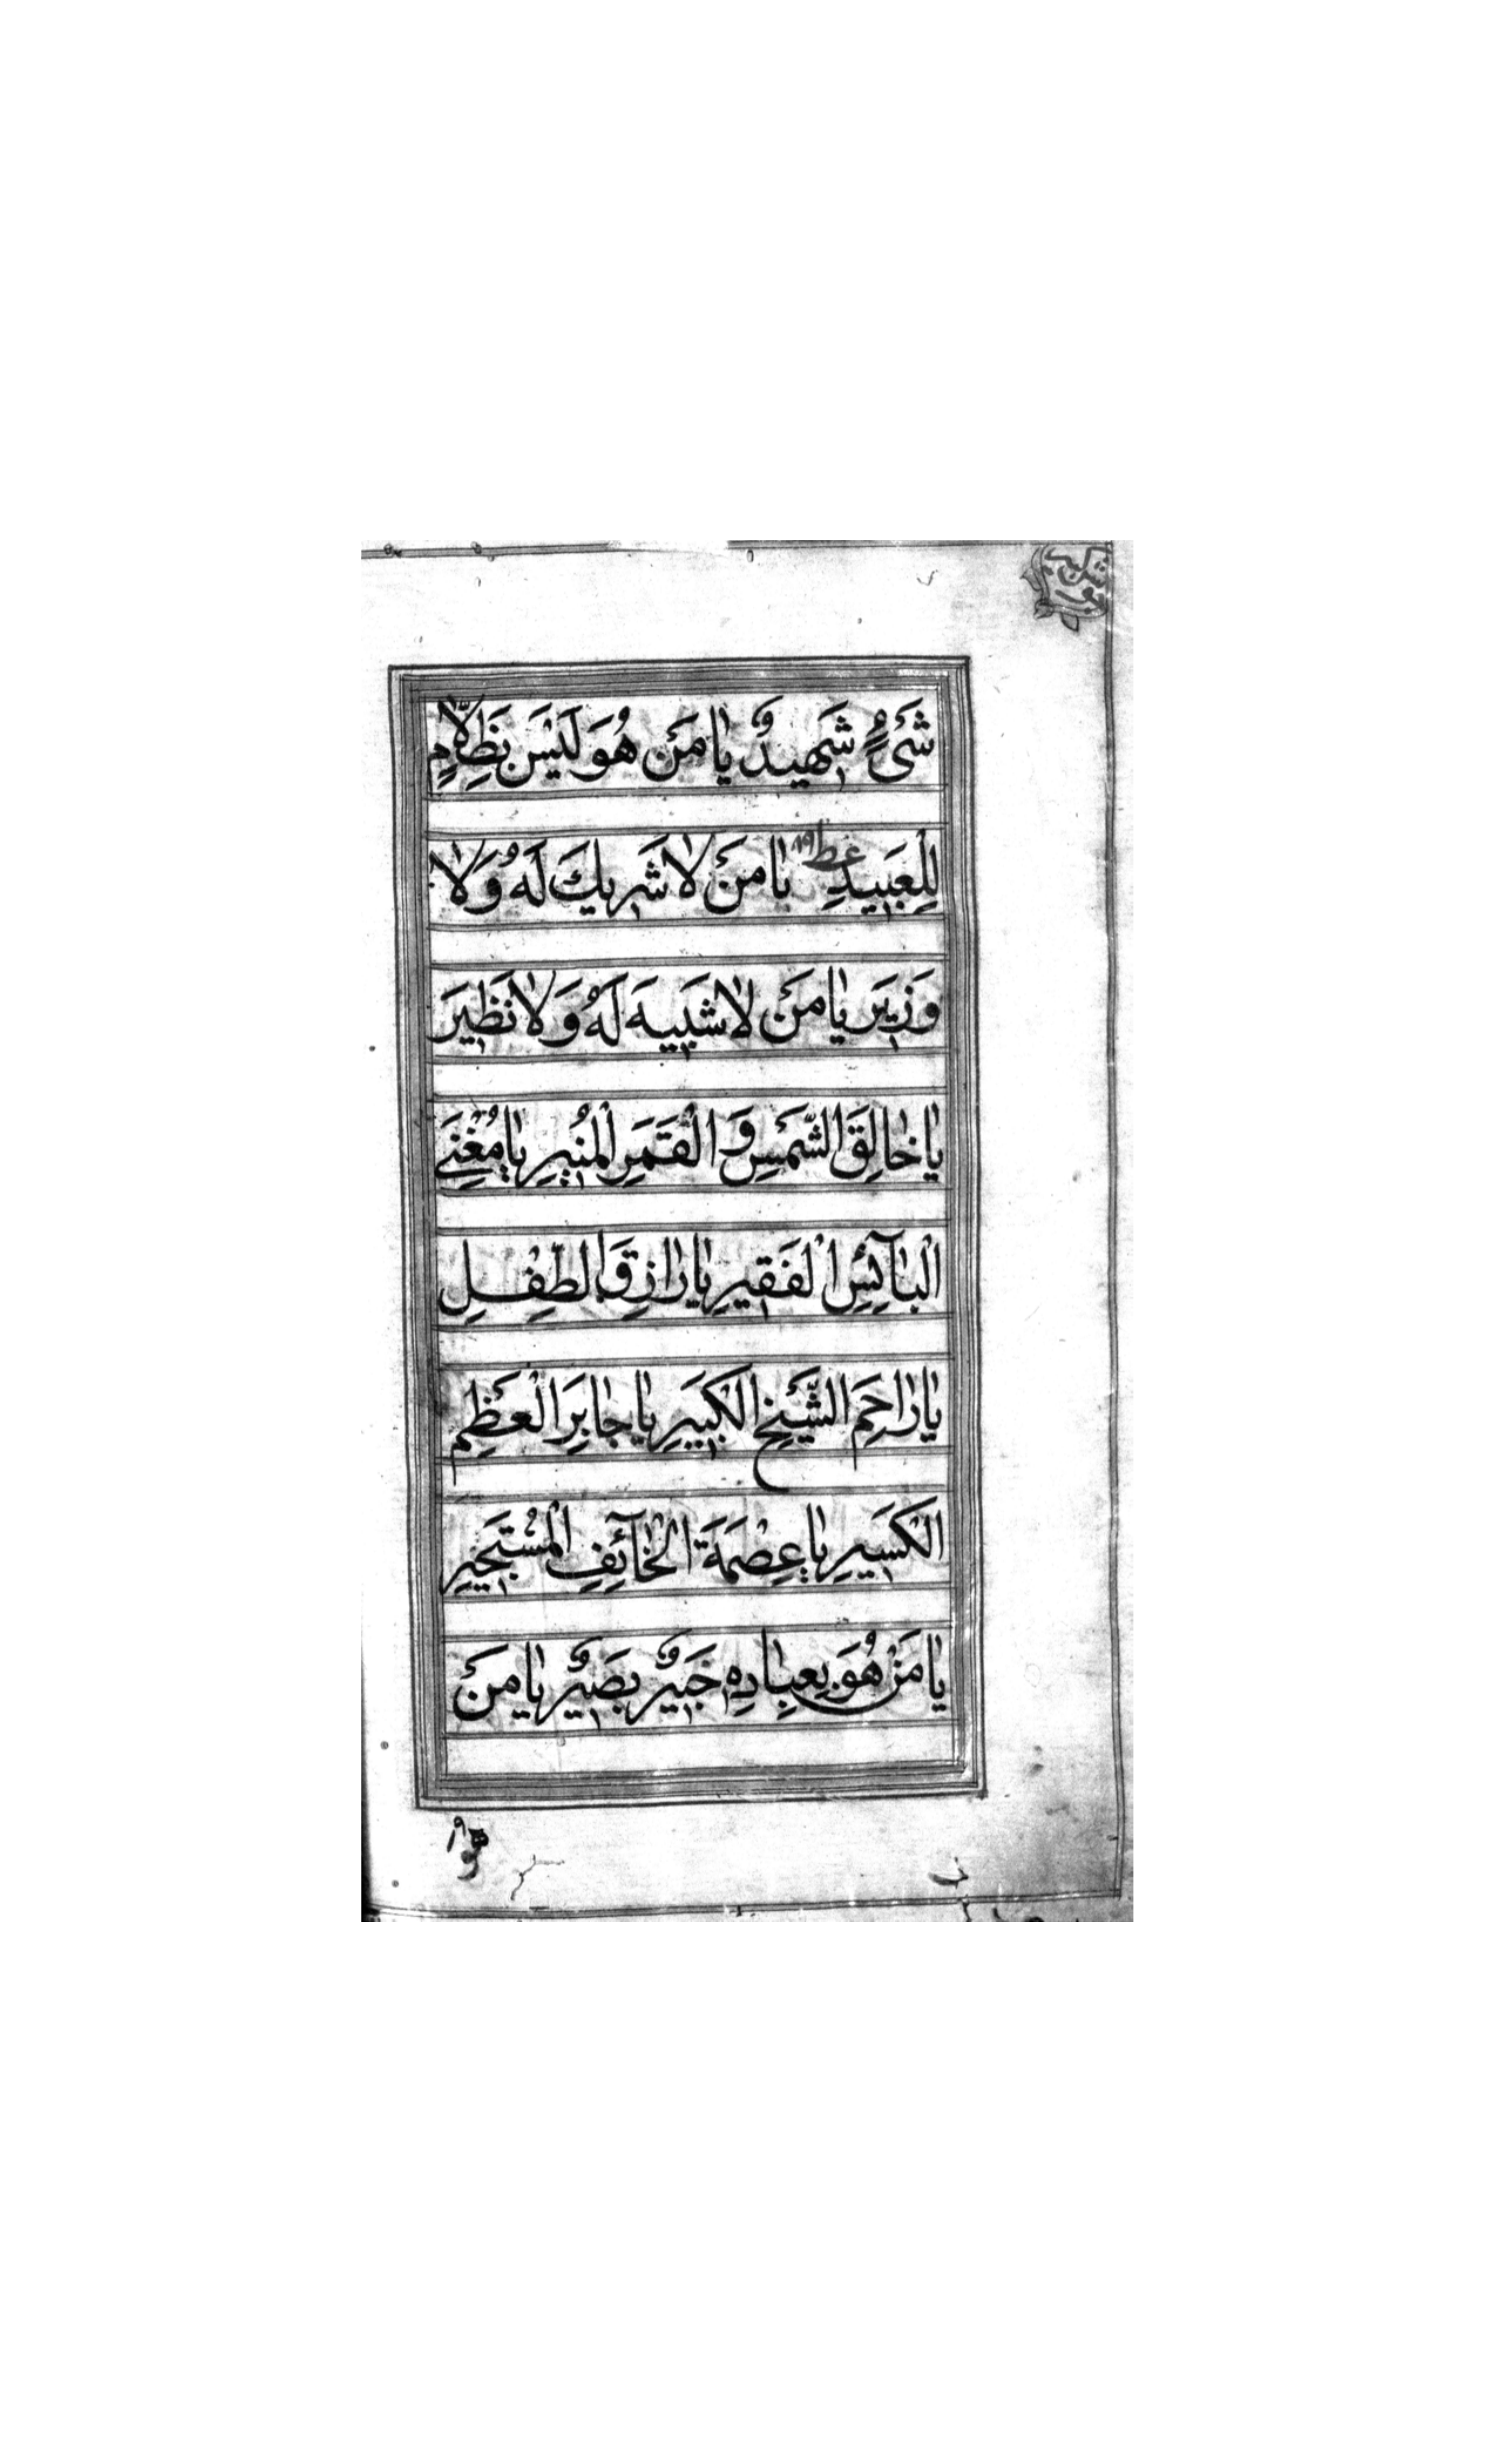 شَیْءٍ شَهِیدٌ یٰا مَنْ هُوَ لَیْسَ بِظَلّاٰمٍ
لِلْعَبِیدِ یٰا مَنْ لاٰ شَرِیكَ لَهُ وَلاٰ
وَزِیرَ یٰا مَنْ لاٰ شَبِیهَ لَهُ وَلاٰ نَظِیرَ
یٰا خٰالِقَ الشَّمْسِ وَ الْقَمَرِ الْمُنِیرِ یٰا مُغْنِیَ
الْبٰآئِسِ الْفَقِیرِ یٰا رٰازِقَ الطِّفْلِ
یٰا رٰاحِمَ الشَّیْخِ الْكَبِیرِ یٰا جٰابِرَ الْعَظْمِ
الْكَسِیرِ یٰا عِصْمَةَ الْخٰآئِفِ الْمُسْتَجِیرِ
یٰا مَنْ هُوَ بِعِبٰادِهِ خَبِیرٌ بَصِیرٌ یٰا مَنْ